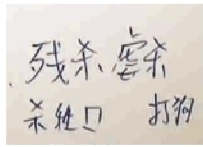 残杀虐杀
杀牲口 打狗